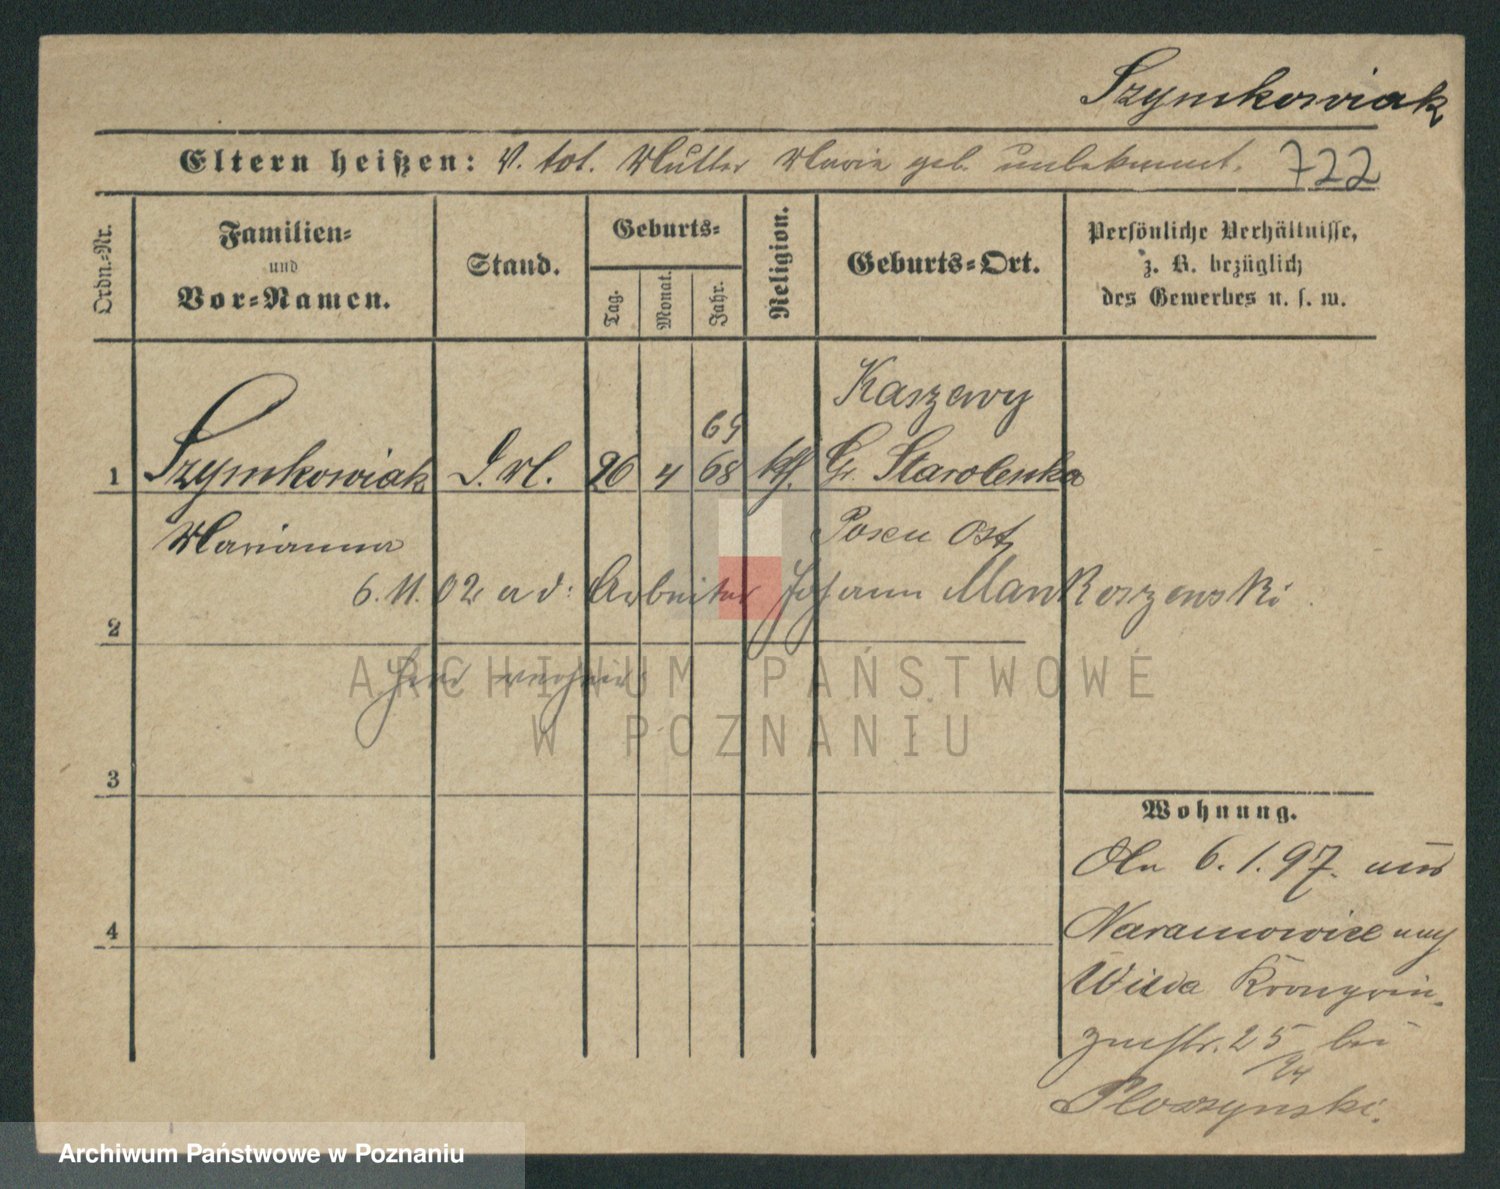 Szymkowiak
Eltern heißen: V. tot. Mutter Marie geb. unbekannt. 722
Ordn.=Nr.
Familien=
und
Vor=Namen.
Stand.
Geburts=
Tag.
Monat.
Jahr.
Religion.
Geburts=Ort.
Persönliche Verhältnisse,
z. B. bezüglich
des Gewerbes u. s. w.
Kaszewy
69
1 Szymkowiak 26 4 68 kth. Gr. Starolenka
Marianna Posen Ost
6. 11. 02 ad: Arbeiter Johann Mankoszewski
2
3
4
Wohnung.
6. 1. 97. aus
Naramowice nach
Wilda Kronprin-
zenstr. 25 bei
Ploszynski.
ARCHIWUM PAŃSTWOWE
W POZNANIU
Archiwum Państwowe w Poznaniu